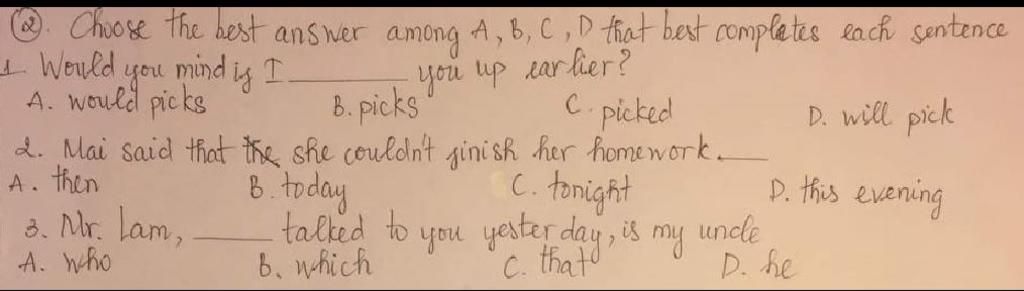 ②. Choose the best answer among A, B, C, D that best completes each sentence
1. Would you mind if I ________ you up earlier?
A. would picks B. picks C. picked D. will pick
2. Mai said that the she couldn't finish her homework. ___
A. then B. today C. tonight D. this evening
3. Mr. Lam, _____ talked to you yesterday, is my uncle
A. who B. which C. that D. he